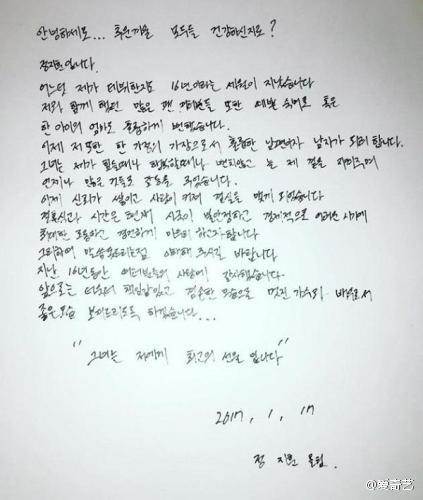 안녕하세요... 추운겨울 모두들 건강하신지요?
정지훈입니다.
어느덧 제가 데뷔한지도 16년이라는 세월이 지났습니다
저와 함께 했던 많은 팬 여러분들 또한 예쁜 숙녀로 혹은
한 아이의 엄마로 훌륭하게 변했습니다.
이제 저 또한 한 가정의 가장으로서 훌륭한 남편이자 남자가 되려 합니다.
그녀는 제가 힘들때나 행복할때나 변치않고 늘 제 곁을 지켜주며
언제나 많은 것들로 감동을 주었습니다.
이제 신뢰가 쌓이고 사랑이 커져 결실을 맺게 되었습니다
결혼식과 시간은 현재 시국이 불안정하고 경제적으로 어려운 시기에
최대한 조용하고 경건하게 하고자합니다
그리하여 말씀 못드리는점 이해해 주시길 바랍니다.
지난 16년동안 여러분들의 사랑에 감사했습니다
앞으로는 더욱더 책임감있고 겸손한 모습으로 멋진 가수와 배우로서
좋은모습 보여드리도록 하겠습니다...
"그녀는 저에게 최고의 선물 입니다"
2017. 1. 17
정 지훈 올림.
@爱奇艺